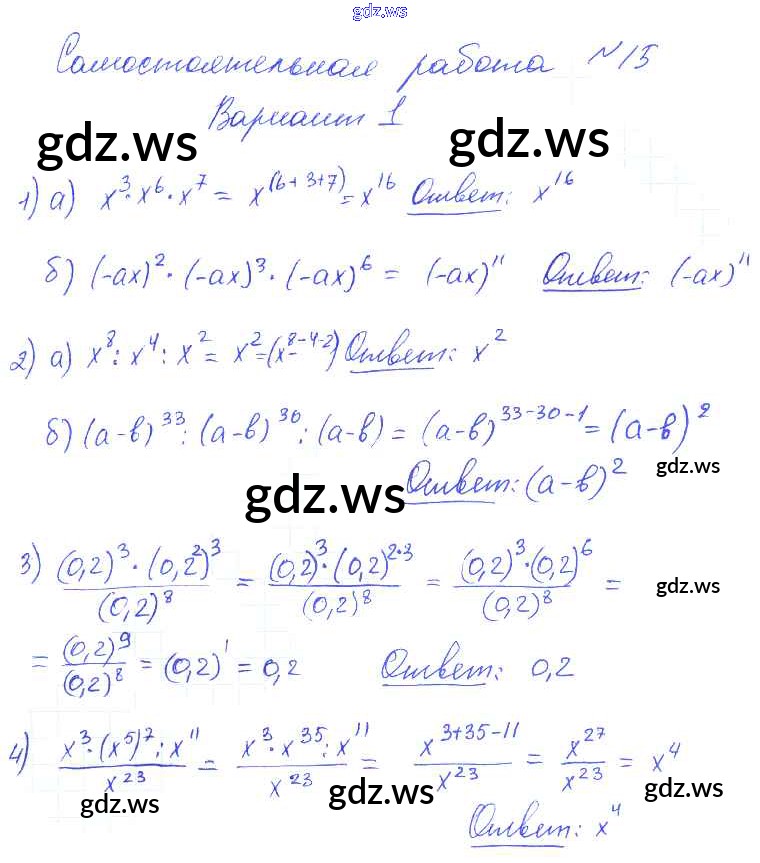 gdz.ws
Самостоятельная работа №15
Вариант 1
gdz.ws
gdz.ws
1) а) x³·x⁶·x⁷ = x^(6+3+7) = x¹⁶ Ответ: x¹⁶
б) (-ax)²·(-ax)³·(-ax)⁶ = (-ax)¹¹ Ответ: (-ax)¹¹
2) а) x⁸:x⁴:x² = x² = (x⁸⁻⁴⁻²) Ответ: x²
б) (а-в)³³:(а-в)³⁰:(а-в) = (а-в)³³⁻³⁰⁻¹ = (а-в)²
gdz.ws
gdz.ws
Ответ: (а-в)²
3) (0,2)³·(0,2²)³ / (0,2)⁸ = (0,2)³·(0,2)²·³ / (0,2)⁸ = (0,2)³·(0,2)⁶ / (0,2)⁸ =
gdz.ws
= (0,2)⁹ / (0,2)⁸ = (0,2)¹ = 0,2 Ответ: 0,2
4) x³·(x⁵)⁷:x¹¹ / x²³ = x³·x³⁵:x¹¹ / x²³ = x³⁺³⁵⁻¹¹ / x²³ = x²⁷ / x²³ = x⁴
gdz.ws
gdz.ws
gdz.ws
Ответ: x⁴